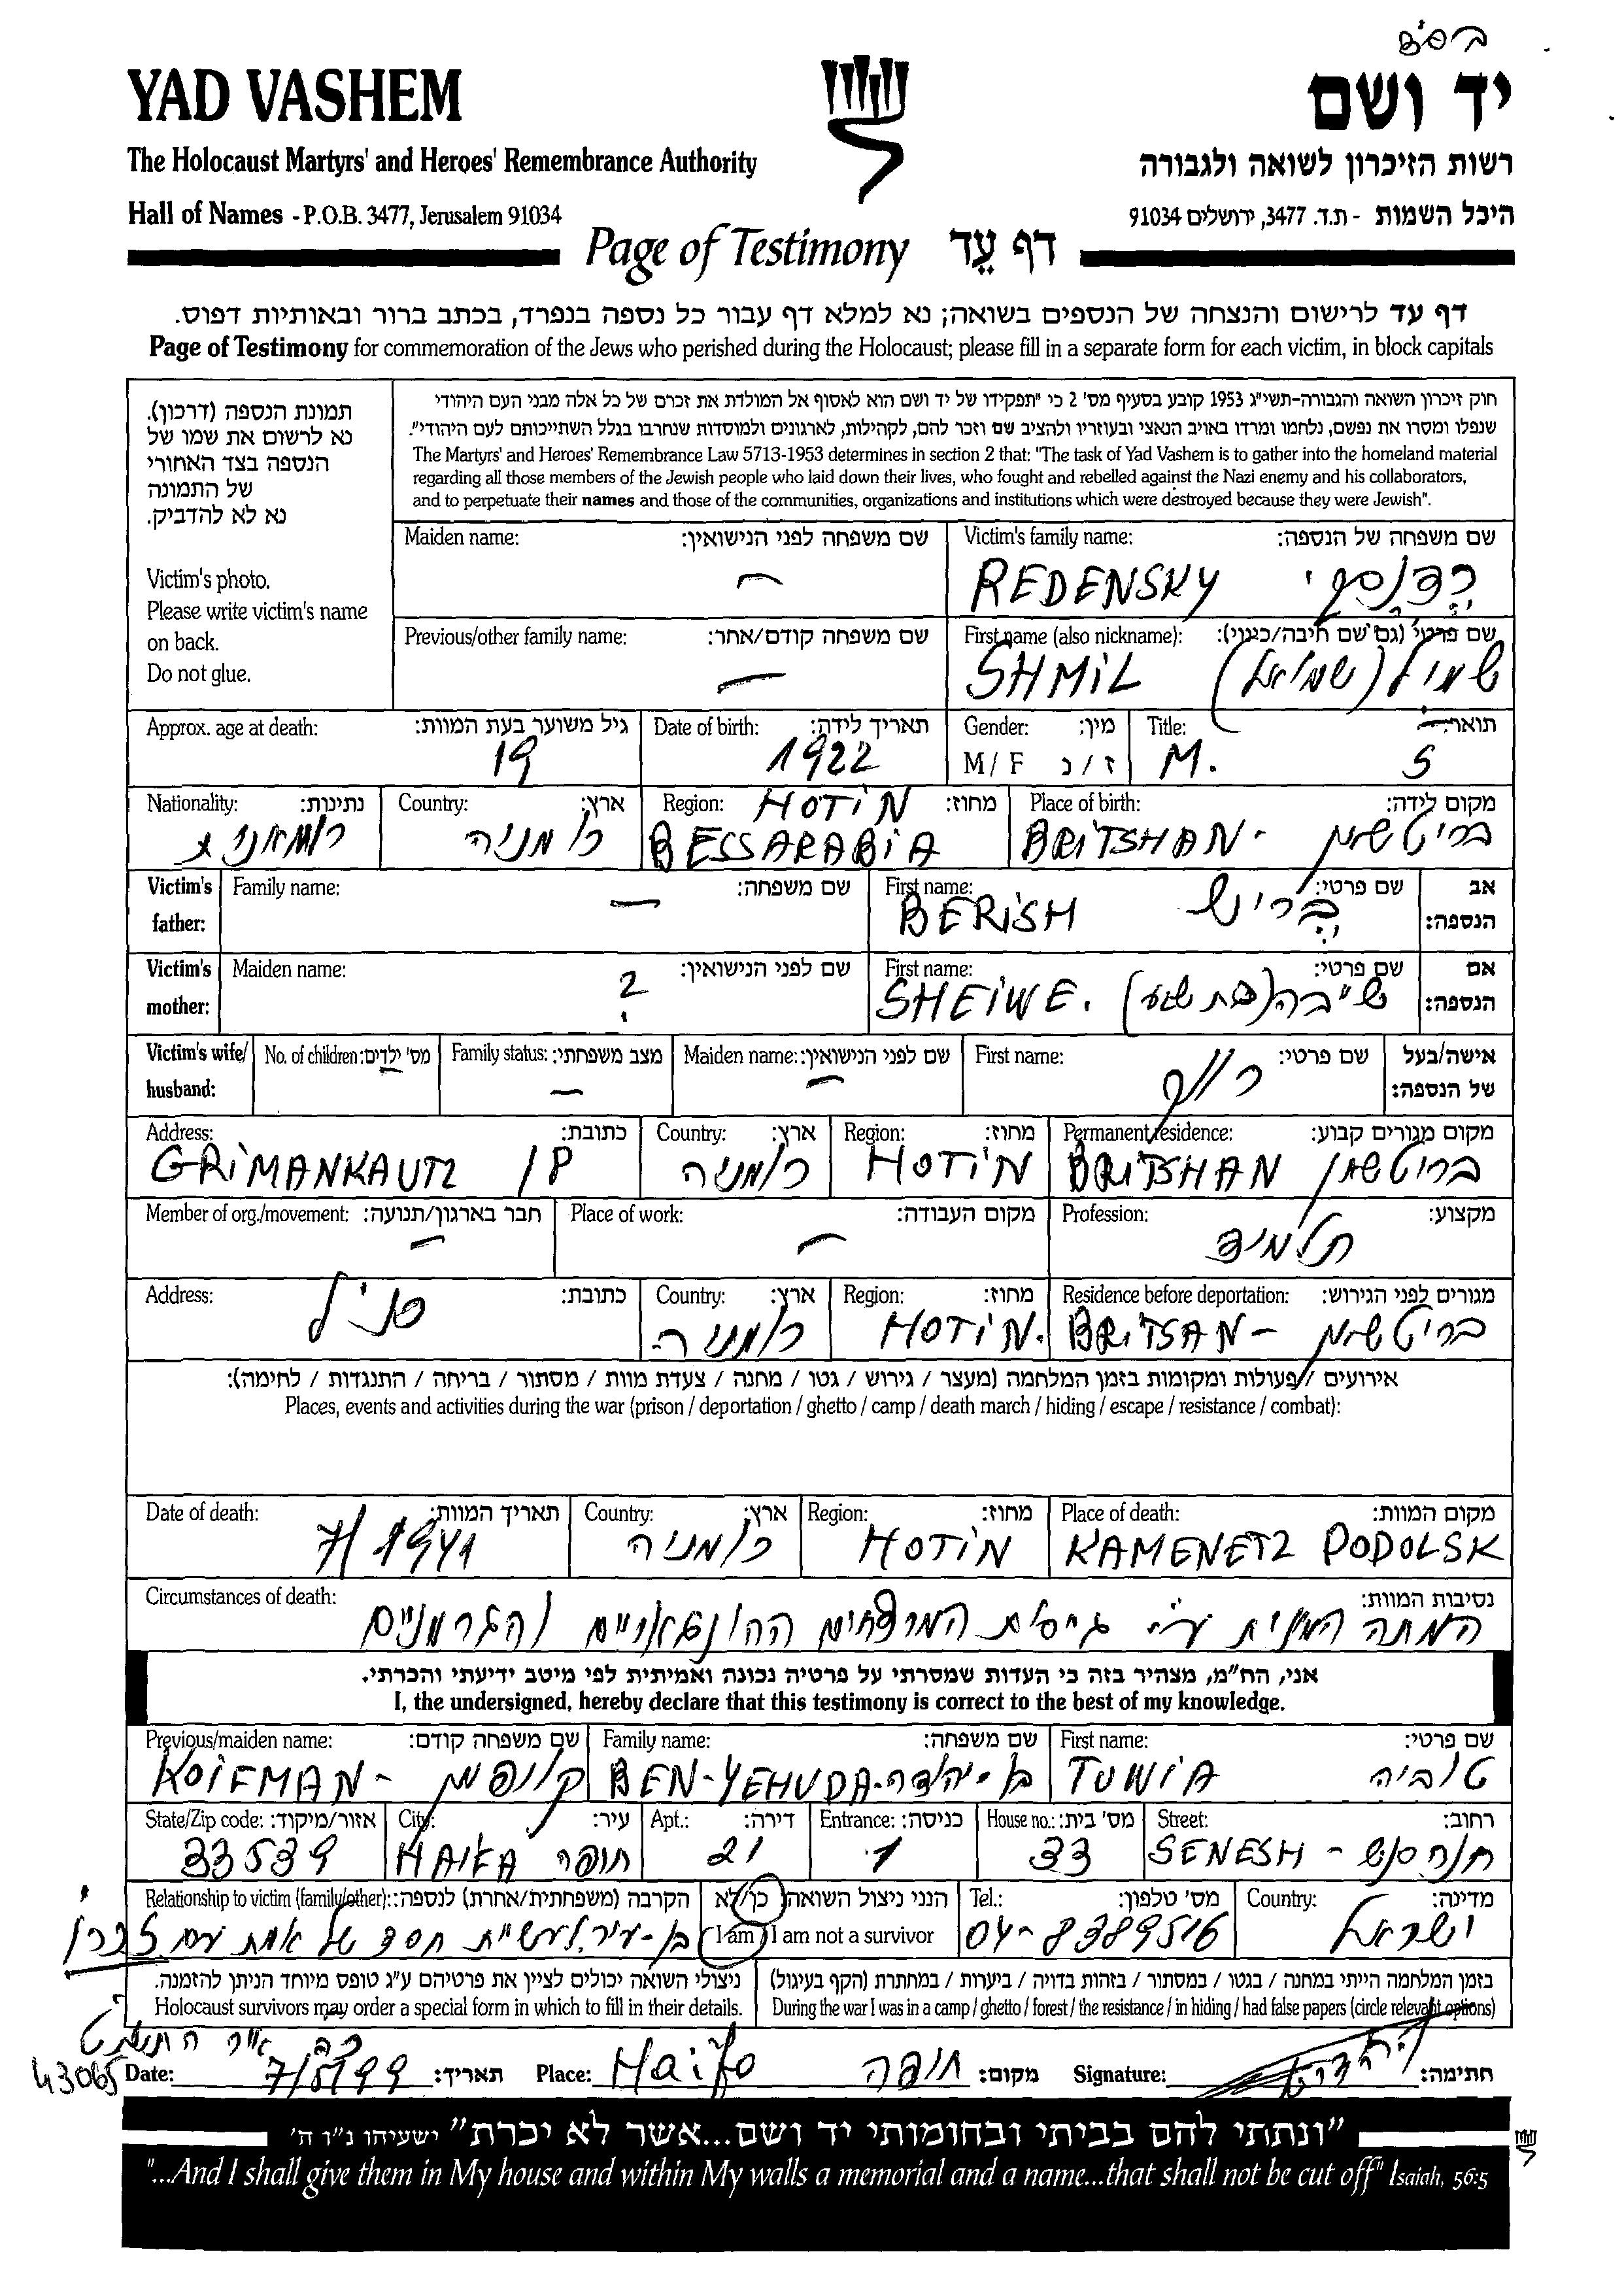 ב ס"ד
YAD VASHEM
יד ושם
The Holocaust Martyrs' and Heroes' Remembrance Authority
רשות הזיכרון לשואה ולגבורה
Hall of Names - P.O.B. 3477, Jerusalem 91034
היכל השמות - ת.ד. 3477, ירושלים 91034
Page of Testimony דף עֵד
דף עד לרישום והנצחה של הנספים בשואה; נא למלא דף עבור כל נספה בנפרד, בכתב ברור ובאותיות דפוס.
Page of Testimony for commemoration of the Jews who perished during the Holocaust; please fill in a separate form for each victim, in block capitals
תמונת הנספה (דרכון).
נא לרשום את שמו של
הנספה בצד האחורי
של התמונה
נא לא להדביק.
Victim's photo.
Please write victim's name
on back.
Do not glue.
חוק זיכרון השואה והגבורה-תשי"ג 1953 קובע בסעיף מס' 2 כי "תפקידו של יד ושם הוא לאסוף אל המולדת את זכרם של כל אלה מבני העם היהודי
שנפלו ומסרו את נפשם, נלחמו ומרדו באויב הנאצי ובעוזריו ולהציב שם וזכר להם, לקהילות, לארגונים ולמוסדות שנחרבו בגלל השתייכותם לעם היהודי".
The Martyrs' and Heroes' Remembrance Law 5713-1953 determines in section 2 that: "The task of Yad Vashem is to gather into the homeland material
regarding all those members of the Jewish people who laid down their lives, who fought and rebelled against the Nazi enemy and his collaborators,
and to perpetuate their names and those of the communities, organizations and institutions which were destroyed because they were Jewish".
Maiden name: שם משפחה לפני הנישואין:
—
Victim's family name: שם משפחה של הנספה:
REDENSKY רֶדֶנסקי
Previous/other family name: שם משפחה קודם/אחר:
—
First name (also nickname): שם פרטי (גם שם חיבה/כינוי):
SHMiL שמיל (שמואל)
Approx. age at death: גיל משוער בעת המוות:
19
Date of birth: תאריך לידה:
1922
Gender: מין:
M / F ז / נ
Title: תואר:
M.
Nationality: נתינות:
רומאנית
Country: ארץ:
רומניה
Region: מחוז:
HOTiN
BESSARABiA
Place of birth: מקום לידה:
BRiTSHAN - בריטשאן
Victim's father: אב הנספה:
Family name: שם משפחה:
—
First name: שם פרטי:
BERiSH בֶּריש
Victim's mother: אם הנספה:
Maiden name: שם לפני הנישואין:
?
First name: שם פרטי:
SHEiWE. שייבה (בת שבע)
Victim's wife/husband: אישה/בעל של הנספה:
No. of children: מס' ילדים:
—
Family status: מצב משפחתי:
—
Maiden name: שם לפני הנישואין:
—
First name: שם פרטי:
רווק
Address: כתובת:
GRiMANKAUTZ 18
Country: ארץ:
רומניה
Region: מחוז:
HOTiN
Permanent residence: מקום מגורים קבוע:
BRiTSHAN בריטשאן
Member of org./movement: חבר בארגון/תנועה:
—
Place of work: מקום העבודה:
—
Profession: מקצוע:
תלמיד
Address: כתובת:
כנ"ל
Country: ארץ:
רומניה
Region: מחוז:
HOTiN.
Residence before deportation: מגורים לפני הגירוש:
BRiTSAN - בריטשאן
אירועים / פעולות ומקומות בזמן המלחמה (מעצר / גירוש / גטו / מחנה / צעדת מוות / מסתור / בריחה / התנגדות / לחימה):
Places, events and activities during the war (prison / deportation / ghetto / camp / death march / hiding / escape / resistance / combat):
Date of death: תאריך המוות:
7/1941
Country: ארץ:
רומניה
Region: מחוז:
HOTiN
Place of death: מקום המוות:
KAMENETZ PODOLSK
Circumstances of death: נסיבות המוות:
המתה המונית ע"י גייסות המרצחים ההונגאריים והגרמניים
אני, הח"מ, מצהיר בזה כי העדות שמסרתי על פרטיה נכונה ואמיתית לפי מיטב ידיעתי והכרתי.
I, the undersigned, hereby declare that this testimony is correct to the best of my knowledge.
Previous/maiden name: שם משפחה קודם:
KOiFMAN - קויפמן
Family name: שם משפחה:
BEN-YEHUDA - בן-יהודה
First name: שם פרטי:
TUWiA טוביה
State/Zip code: אזור/מיקוד:
33539
City: עיר:
HAiFA חיפה
Apt.: דירה:
21
Entrance: כניסה:
1
House no.: מס' בית:
33
Street: רחוב:
SENESH - חנה סנש
Relationship to victim (family/other): הקרבה (משפחתית/אחרת) לנספה:
בן-עיר, לעשיית חסד של אמת עם זכרו
הנני ניצול השואה כן/לא
I am / I am not a survivor
Tel.: מס' טלפון:
04-8389516
Country: מדינה:
ישראל
ניצולי השואה יכולים לציין את פרטיהם ע"ג טופס מיוחד הניתן להזמנה.
Holocaust survivors may order a special form in which to fill in their details.
בזמן המלחמה הייתי במחנה / בגטו / במסתור / בזהות בדויה / ביערות / במחתרת (הקף בעיגול)
During the war I was in a camp / ghetto / forest / the resistance / in hiding / had false papers (circle relevant options)
אייר התשנ"ט
43065
Date: 7/5/99 תאריך:
Place: Haifa חיפה מקום:
Signature: חתימה:
"ונתתי להם בביתי ובחומותי יד ושם...אשר לא יכרת" ישעיהו נ"ו ה'
"...And I shall give them in My house and within My walls a memorial and a name...that shall not be cut off" Isaiah, 56:5